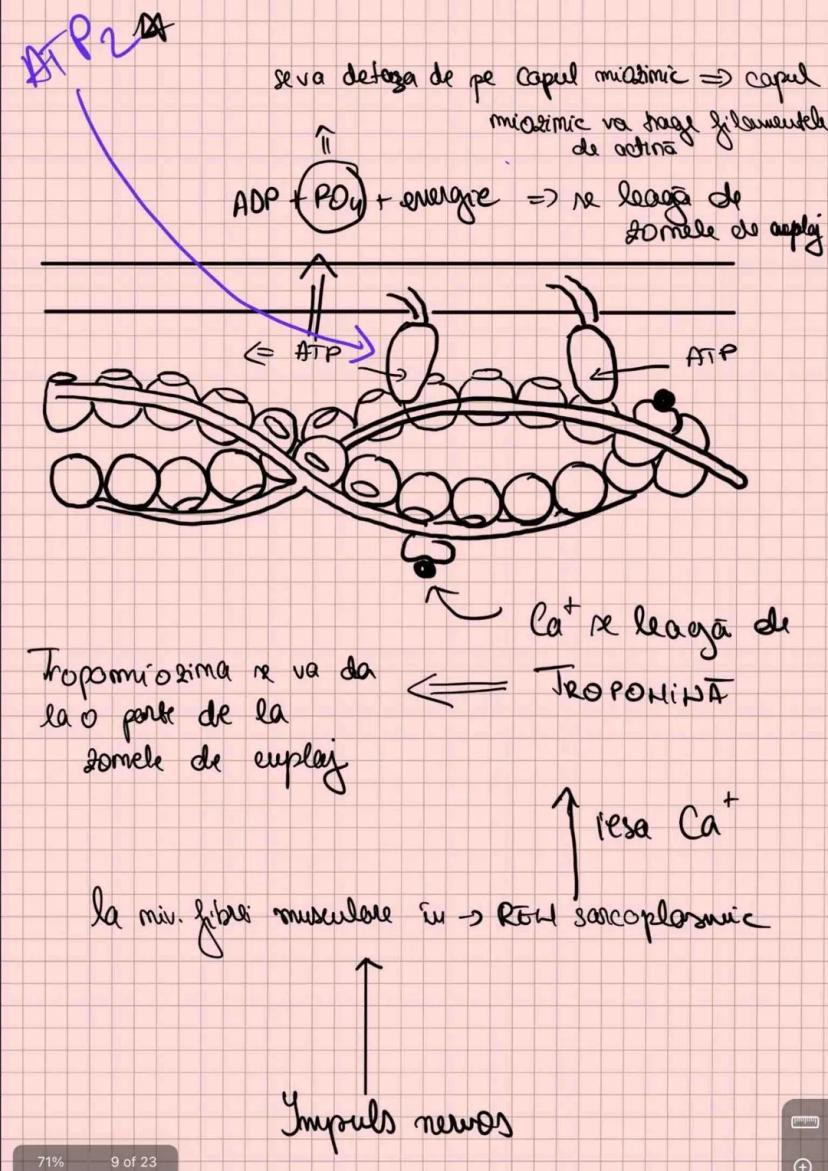 ATP2
se va detașa de pe capul miozinic => capul
miozinic va trage filamentele
de actină
ADP + PO4 + energie => se leagă de
zonele de cuplaj
<= ATP
ATP
Ca+ se leagă de
TROPONINĂ
Tropomiozina se va da
la o parte de la
zonele de cuplaj
iesa Ca+
la niv. fibrei musculare în -> REN sarcoplasmic
Impuls nervos
71% 9 of 23